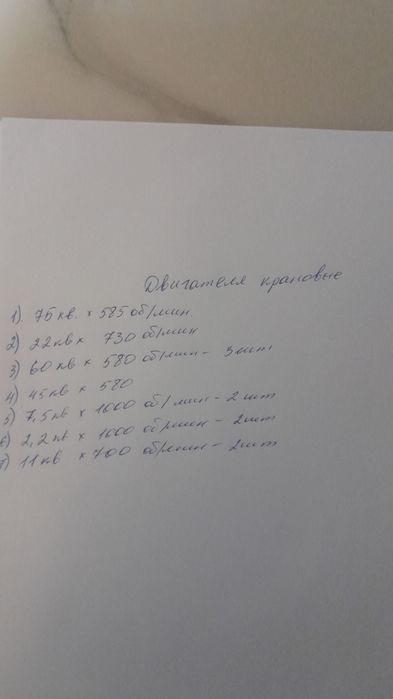 Двигателя крановые
1). 75 кв. х 585 об/мин.
2) 22 кв х 730 об/мин
3) 60 кв х 580 об/мин - 3 шт
4) 45 кв х 580
5) 7,5 кв х 1000 об/мин - 2 шт
6) 2,2 кв х 1000 об/мин - 2 шт
7) 11 кв х 700 об/мин - 2 шт